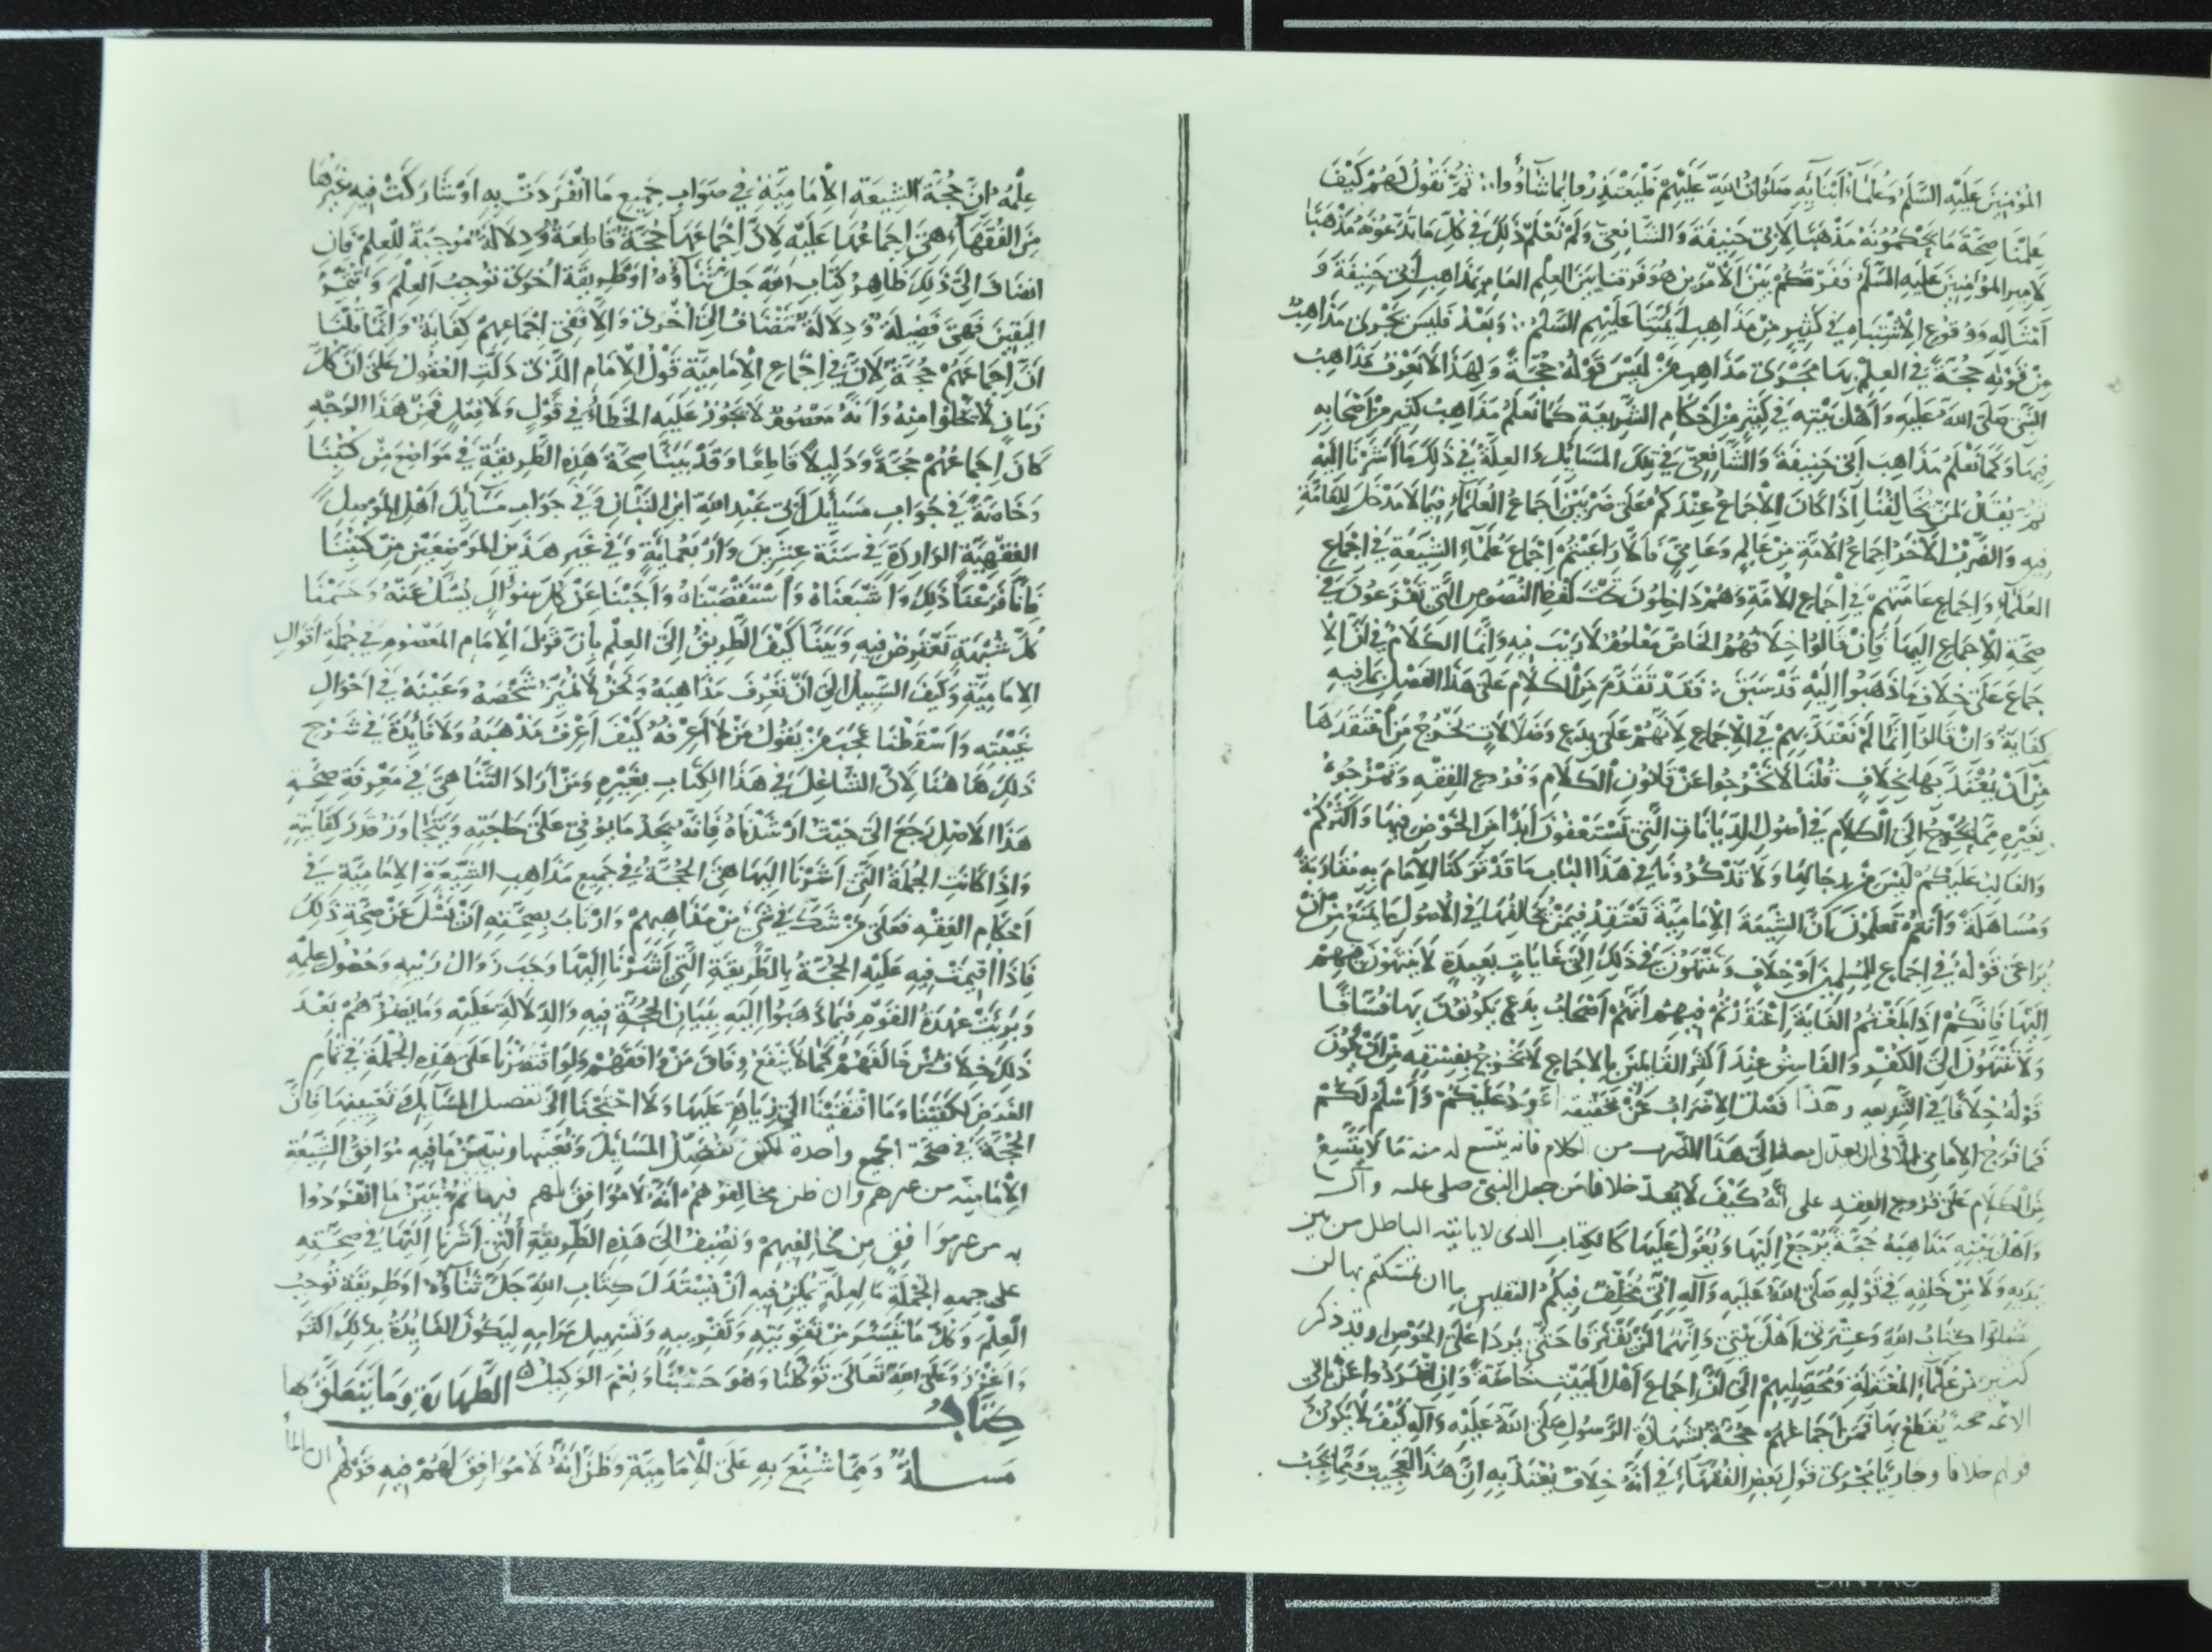 المُؤمِنينَ عَلَيْهِ السَّلَمُ وَعُلَمَاءُ أَبْنَآئِهِ صَلَوَاتُ اللهِ عَلَيْهِمْ فَلْيَعْتَذِرُوا بِمَا شَآؤُوا ∴ ثُمَّ نَقُولُ لَهُمْ كَيْفَ
عَلِمْنَا صِحَّةَ مَا تَحْكُمُونَهُ مَذْهَبًا لأبى حَنِيفَةَ وَالشَّافِعِىِّ وَلَمْ نَعْلَمْ ذَلِكَ فِي كُلِّ مَا تَدَّعُونَهُ مَذْهَبًا
لأمِيرِ المُؤْمِنِينَ عَلَيْهِ السَّلَمُ فَفَرْقُكُمْ بَيْنَ الأَمْرَيْنِ هُوَ فَرْقنا بَيْنَ العِلْمِ العَامِ بِمَذَاهِبِ أَبِي حَنِيفَةَ وَ
أَمْثَالِهِ وَوُقُوعِ الاِشْتِبَاهِ فِي كَثِيرٍ مِنْ مَذَاهِبِ أَئِمَّتِنَا عَلَيْهِمُ السَّلَمُ ∴ وَبَعْدُ فَلَيْسَ يَجْرِى مَذَاهِبُ
مَنْ قَوْلُهُ حُجَّةٌ فِي العِلْمِ بِهَا مَجْرَى مَذَاهِبِ مَنْ لَيْسَ قَوْلُهُ حُجَّةً وَلِهَذَا لاَ نَعْرِفُ مَذَاهِبَ
النَّبِىِّ صَلَّى اللهُ عَلَيْهِ وَأَهْلِ بَيْتِهِ فِي كَثِيرٍ مِنْ أَحْكَامِ الشَّرِيعَةِ كَمَا نَعْلَمُ مَذَاهِبَ كَثِيرٍ مِنْ أَصْحَابِهِ
فِيهَا وَكَمَا نَعْلَمُ مَذَاهِبَ أبى حَنِيفَةَ وَالشَّافِعِىِّ فِي تِلْكَ المَسَائِلِ وَالعِلَّةُ فِي ذَلِكَ مَا أَشَرْنَا إِلَيْهِ
ثُمَّ يُقَالُ لِمَنْ يُخَالِفُنَا إِذَا كَانَ الإِجْمَاعُ عِنْدَكُمْ عَلَى ضَرْبَيْنِ إِجْمَاعُ العُلَمَآءِ فِيمَا لاَ مَدْخَلَ لِلعَامَّةِ
فِيهِ وَالضَّرْبُ الآخَرُ إِجْمَاعُ الأُمَّةِ مِنْ عَالِمٍ وَعَامِّىٍّ فَأَلاَّ رَاعَيْتُمْ إِجْمَاعَ عُلَمَآءِ الشِّيعَةِ فِي إِجْمَاعِ
العُلَمَاءِ وَإِجْمَاعِ عَامَّتِهِمْ فِي إِجْمَاعِ الأُمَّةِ وَهُمْ دَاخِلُونَ تَحْتَ لَفْظِ النُّصُوصِ الَّتِي تَفْزَعُونَ فِي
صِحَّةِ الإِجْمَاعِ إِلَيْهَا فَإِنْ قَالُوا خِلاَفُهُمُ الخَاصُّ مَعْلُومٌ لاَ رَيْبَ فِيهِ وَإِنَّمَا الكَلاَمُ فِي أَنَّ الإِ
جْمَاعَ عَلَى خِلاَفِ مَا ذَهَبُوا إِلَيْهِ قَدْ سَبَقَ ∴ فَقَدْ تَقَدَّمَ مِنَ الكَلاَمِ عَلَى هَذَا الفَصْلِ مَا فِيهِ
كِفَايَةٌ وَإِنْ قَالُوا إِنَّمَا لَمْ نَعْتَدَّ بِهِمْ فِي الإِجْمَاعِ لأَنَّهُمْ عَلَى بِدَعٍ وَضَلاَلاَتٍ تُخْرِجُ مَنِ اعْتَقَدَهَا
مِنْ أَنْ يُعْتَدَّ بِهَا بِخِلاَفٍ قُلْنَا لاَ تَخْرُجُوا عَنْ قَانُونِ الكَلاَمِ وَفُرُوعِ الفِقْهِ وَتَمْزُجُوهُ
بِغَيْرِهِ مِمَّا يُحْوِجُ إِلَى الكَلاَمِ فِي أُصُولِ الدِّيَانَاتِ الَّتِي تَسْتَعْفُونَ أَبَدًا مِنَ الخَوْضِ فِيهَا وَأَكْثَرُكُمْ
وَالغَالِبُ عَلَيْكُمْ لَيْسَ مِنْ رِجَالِهَا وَلاَ تَذْكُرُونَا فِي هَذَا البَابِ مَا قَدْ تَرَكْنَا الإِلمَامَ بِهِ مُقَارَبَةً
وَمُسَاهَلَةً وَأَنْتُمْ تَعْلَمُونَ أَنَّ الشِّيعَةَ الإِمَامِيَّةَ تَعْتَقِدُ فِيمَنْ خَالَفَهَا فِي الأُصُولِ مَا يَمْنَعُ مِنْ أَنْ
يُرَاعَى قَوْلُهُ فِي إِجْمَاعِ المُسْلِمِينَ أَوْ خِلاَفٍ وَيَنْتَهُونَ فِي ذَلِكَ إِلَى غَايَاتٍ بَعِيدَةٍ لاَ تَنْتَهُونَ فِيهِمْ
إِلَيْهَا فَإِنَّكُمْ إِذَا بَلَغْتُمُ الغَايَةَ اعْتَقَدْتُمْ فِيهِمْ أَنَّهُمْ أَصْحَابُ بِدَعٍ يَكُونُونَ بِهَا فُسَّاقًا
وَلاَ تَنْتَهُونَ إِلَى الكُفْرِ وَالفَاسِقُ عِنْدَ أَكْثَرِ القَائِلِينَ بِالإجْمَاعِ لاَ يَخْرُجُ بِفِسْقِهِ مِنْ أَنْ يَكُونَ
قَوْلُهُ خِلاَفًا فِي الشَّرِيعَةِ وهَذَا فَصْلٌ الإِضْرَابُ عَنْ تحقيقه أَعْوَدُ عَلَيْكُمْ وَأَسْلَمُ لَكُمْ
فَمَا فَرَحُ الإِمَامِىِّ إِلاَّ فِي أن يعدل معه إِلَى هَذَا الضَّرْبِ من الكلام فإنه يتسع له منه مَا لاَ يَتَّسِعُ
مِنَ الكَلاَمِ عَلَى فُرُوعِ الفِقْهِ على أَنَّهُ كَيْفَ لاَ يَعُدُّ خلافا مَنْ جعل النبىّ صلى عليه وآله
وَأَهْلَ بَيْتِهِ مَذَاهِبَهُ حُجَّةً يُرْجَعُ إِلَيْهَا وَيُعَوَّلُ عَلَيْهَا كَالكِتَابِ الذى لا يأتيه الباطل من بين
يَدَيْهِ وَلاَ مِنْ خَلْفِهِ فِي قَوْلِهِ صَلَّى اللهُ عَلَيْهِ وَآلِهِ إِنِّي مُخَلِّفٌ فِيكُمُ الثقلين ما ان تمسكتم بها لن
تَضِلُّوا كِتَابُ اللهِ وَعِتْرَتى أَهْلَ بَيْتِي وَإِنَّهُمَا لَنْ يَفْتَرِقَا حَتَّى يَرِدَا عَلَى الحَوْضَ وقد ذكر
كثير مِنْ عُلَمَآءِ المُعْتَزِلَةِ وَمُحَصِّلِيهِمْ إِلَى أَنَّ إِجْمَاعَ أَهْلِ البَيْتِ خَاصَّةً وَإِنِ انْفَرَدُوا عَنْ باقى
الأمة حجة يُقْطَعُ بِهَا فَمَنْ إِجْمَاعُهُمْ حُجَّةٌ بِشَهَادَةِ الرَّسُولِ صَلَّى اللهُ عَلَيْهِ وَآلِهِ كَيْفَ لاَ يَكُونُ
قولهم خلافا وجاريًا مَجْرَى قَوْلِ بَعْضِ الفُقَهَآءِ فِي أَنَّهُ خِلاَفٌ يُعْتَدُّ بِهِ إِنَّ هَذَا لَعَجِيبٌ وَمِمَّا يَجِبُ
عِلْمُهُ أَنَّ حُجَّةَ الشِّيعَةِ الإِمَامِيَّةِ فِي صَوَابِ جَمِيعِ مَا انْفَرَدَتْ بِهِ أَوْ شَارَكَتْ فِيهِ غَيْرَهَا
مِنَ الفُقَهَآءِ هِىَ إِجْمَاعُهَا عَلَيْهِ لأَنَّ إِجْمَاعَهَا حُجَّةٌ قَاطِعَةٌ وَدِلاَلَةٌ مُوجِبَةٌ لِلْعِلْمِ فَإِنِ
انْضَافَ إِلَى ذَلِكَ ظَاهِرُ كِتَابِ اللهِ جَلَّ ثَنَاؤُهُ أَوْ طَرِيقَةٌ أُخْرَى تُوجِبُ العِلْمَ وَتُثْمِرُ
اليَقِينَ فَهِىَ فَضِيلَةٌ وَدِلاَلَةٌ تَنْضَافُ إِلَى أُخْرَى وَإِلاَّ فَفِي إِجْمَاعِهِمْ كِفَايَةٌ وَإِنَّمَا قُلْنَا
أَنَّ إِجْمَاعَهُمْ حُجَّةٌ لأَنَّ فِي إِجْمَاعِ الإِمَامِيَّةِ قَوْلَ الإِمَامِ الَّذِى دَلَّتِ العُقُولُ عَلَى أَنَّ كُلَّ
زَمَانٍ لاَ يَخْلُوا مِنْهُ وَأَنَّهُ مَعْصُومٌ لاَ يَجُوزُ عَلَيْهِ الخَطَاءُ فِي قَوْلٍ وَلاَ فِعْلٍ فَمِنْ هَذَا الوَجْهِ
كَانَ إِجْمَاعُهُمْ حُجَّةً وَدَلِيلاً قَاطِعًا وَقَدْ بَيَّنَّا صِحَّةَ هَذِهِ الطَّرِيقَةِ فِي مَوَاضِعَ مِنْ كُتُبِنَا
وَخَاصَّةً فِي جَوَابِ مَسَائِلِ أَبِي عَبْدِ اللهِ ابْنِ التَّبَّانِ وَفِي جَوَابِ مَسَآئِلِ أَهْلِ المَوْصِلِ
الفِقْهِيَّةِ الوَارِدَةِ فِي سَنَةِ عِشْرِينَ وَأَرْبَعْمِايَةٍ وَفِي غَيْرِ هَذَيْنِ المَوْضِعَيْنِ مِنْ كُتُبِنَا
فَإِنَّا فَرَّعْنَا ذَلِكَ وَأَشْبَعْنَاهُ وَاسْتَقْصَيْنَاهُ وَأَجَبْنَا عَنْ كُلِّ سُؤَالٍ يُسْئَلُ عَنْهُ وَحَسَمْنَا
كُلَّ شُبْهَةٍ تَعْتَرِضُ فِيهِ وَبَيَّنَّا كَيْفَ الطَّرِيقُ إِلَى العِلْمِ بِأَنَّ قَوْلَ الإِمَامِ المَعْصُومِ فِي جُمْلَةِ أَقْوَالِ
الإِمَامِيَّةِ وَكَيْفَ السَّبِيلُ إِلَى أَنْ نَعْرِفَ مَذَاهِبَهُ وَنَحْنُ لاَ نُمَيِّزُ شَخْصَهُ وَعَيْنَهُ فِي أَحْوَالِ
غَيْبَتِهِ وَأَسْقَطْنَا عَجَبَ مَنْ يَقُولُ مَنْ لاَ أَعْرِفُهُ كَيْفَ أَعْرِفُ مَذْهَبَهُ وَلاَ فَائِدَةَ فِي شَرْحِ
ذَلِكَ هَا هُنَا لأَنَّ التَّشَاغُلَ فِي هَذَا الكِتَابِ بِغَيْرِهِ وَمَنْ أَرَادَ التَّنَاهِىَ فِي مَعْرِفَةِ صِحَّةِ
هَذَا الأَصْلِ رَجَعَ إِلَى حَيْثُ أَرْشَدْنَاهُ فَإِنَّهُ يَجِدُ مَا يُوفِي عَلَى حَاجَتِهِ وَيَتَجَاوَزُ قَدْرَ كِفَايَتِهِ
وَإِذَا كَانَتِ الجُمْلَةُ الَّتِي أَشَرْنَا إِلَيْهَا هِىَ الحُجَّةُ فِي جَمِيعِ مَذَاهِبِ الشِّيعَةِ الإِمَامِيَّةِ فِي
أَحْكَامِ الفِقْهِ فَعَلَى مَنْ شَكَّ فِي شَىْءٍ مِنْ مَذَاهِبِهِمْ وَارْتَابَ بِصِحَّتِهِ أَنْ يَسْئَلَ عَنْ صِحَّةِ ذَلِكَ
فَإِذَا أُقِيمَتْ فِيهِ عَلَيْهِ الحُجَّةُ بِالطَّرِيقَةِ الَّتِي أَشَرْنَا إِلَيْهَا وَجَبَ زَوَالُ رَيْبِهِ وَحُصُولُ عِلْمِهِ
وَبَرِئَتْ عُهْدَةُ القَوْمِ فِيمَا ذَهَبُوا إِلَيْهِ بِبَيَانِ الحُجَّةِ فِيهِ وَالدِّلاَلَةِ عَلَيْهِ وَمَا يَضُرُّهُمْ بَعْدَ
ذَلِكَ خِلاَفُ مَنْ خَالَفَهُمْ كَمَا لاَ يَنْفَعُ وِفَاقُ مَنْ وَافَقَهُمْ وَلَوِ اقْتَصَرْنَا عَلَى هَذِهِ الجُمْلَةِ فِي تَمَامِ
الغَرَضِ لَكَفَتْنَا وَمَا افْتَقَرْنَا إِلَى زِيَادَةٍ عَلَيْهَا وَلاَ احْتَجْنَا إِلَى تفصيل المَسَآئِلِ وَتَعْيِينِهَا فَإِنَّ
الحُجَّةَ فِي صحة الجميع واحدة لكن نفصِّلُ المَسَائِلَ وَنُعَيِّنُها ونبيّنُ مَا فِيهِ مُوَافِقُ الشِّيعَةِ
الإِمَامِيَّةِ من غيرهم وان ظن مخالفوهُمْ أَنَّهُ لاَ مُوَافِقَ لهم فيها ثُمَّ نُبَيِّنُ مَا انْفَرَدُوا
به من غير مُوَافِقٍ مِنْ مُخَالِفِيهِمْ وَنُضِيفُ إِلَى هَذِهِ الطَّرِيقَةِ الَّتِي أَشَرْنَا إِلَيْهَا فِي صِحَّتِهِ
على جهة الجُمْلَةِ مَا لعلة يُمْكِنُ فِيهِ أَنْ يُسْتَدَلَّ كِتَابِ اللهِ جَلَّ ثَنَآؤُهُ أَوْ طَرِيقَةٍ تُوجِبُ
العِلْمَ وَكُلُّ مَا تَيَسَّرَ مِنْ تَقْوِيَتِهِ وَتَقْرِيبِهِ وَتَسْهِيلِ مَرَامِهِ لِيَكُونَ الفَائِدَةُ بِذَلِكَ أَكْثَرَ
وَأَغْزَرَ وَعَلَى اللهِ تَعَالَى تَوَكُّلُنَا وَهُوَ حَسْبُنَا وَنِعْمَ الوَكِيلُ ه الطَّهَارَةِ وَمَا يَتَعَلَّقُ بها
كِتَابُ
مسألةٌ وَمِمَّا شُنِّعَ بِهِ عَلَى الإِمَامِيَّةِ وَظُنَّ أَنَّهُ لاَ مُوَافِقَ لَهُمْ فِيهِ قَوْلُهُمْ ان الماءَ